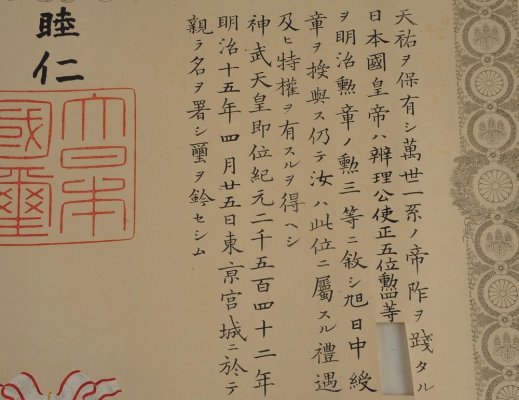 天祐ヲ保有シ萬世一系ノ帝阼ヲ踐タル
日本國皇帝ハ辨理公使正五位勲四等
ヲ明治勲章ノ勲三等ニ敘シ旭日中綬
章ヲ授與ス仍テ汝ハ此位ニ屬スル禮遇
及ヒ特權ヲ有スルヲ得ヘシ
神武天皇即位紀元二千五百四十二年
明治十五年四月廿五日東京宮城ニ於テ
親ラ名ヲ署シ璽ヲ鈐セシム
睦仁
大日本
國璽